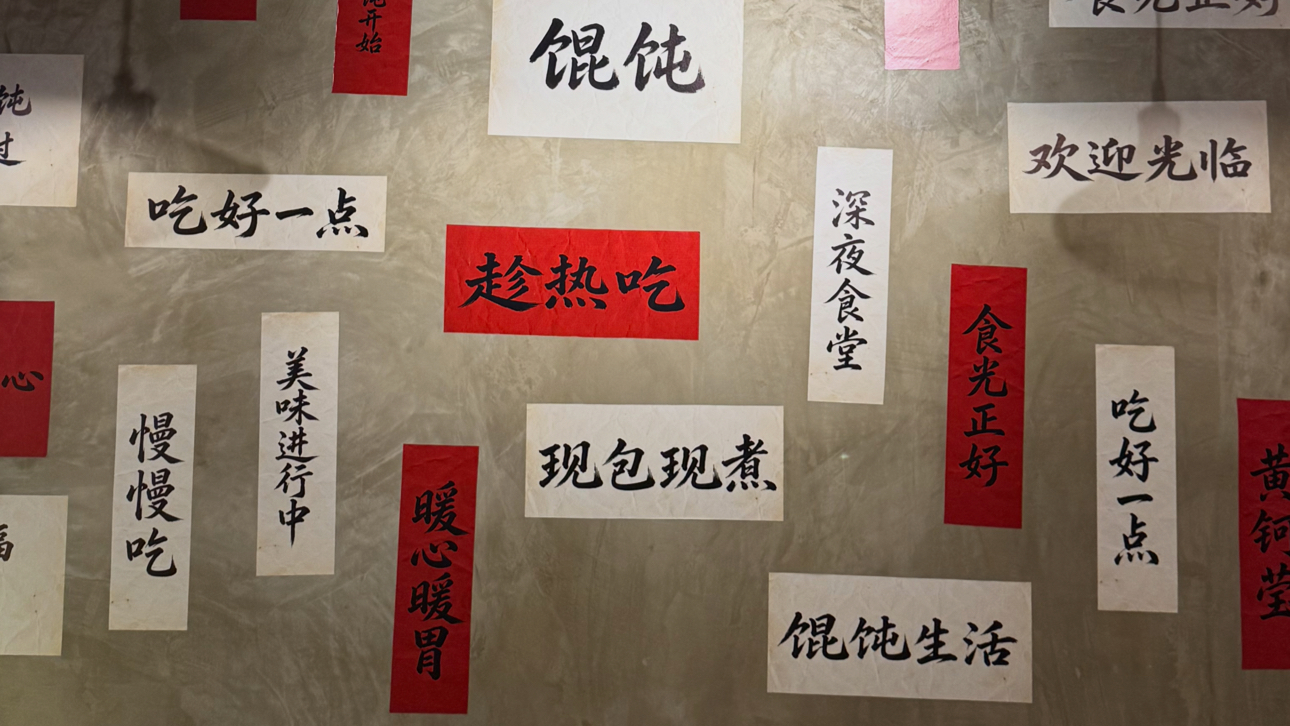 开始
馄饨
食光正好
饨
过
欢迎光临
吃好一点
深夜食堂
趁热吃
食光正好
心
美味进行中
吃好一点
慢慢吃
现包现煮
黄钶莹
暖心暖胃
馄饨生活